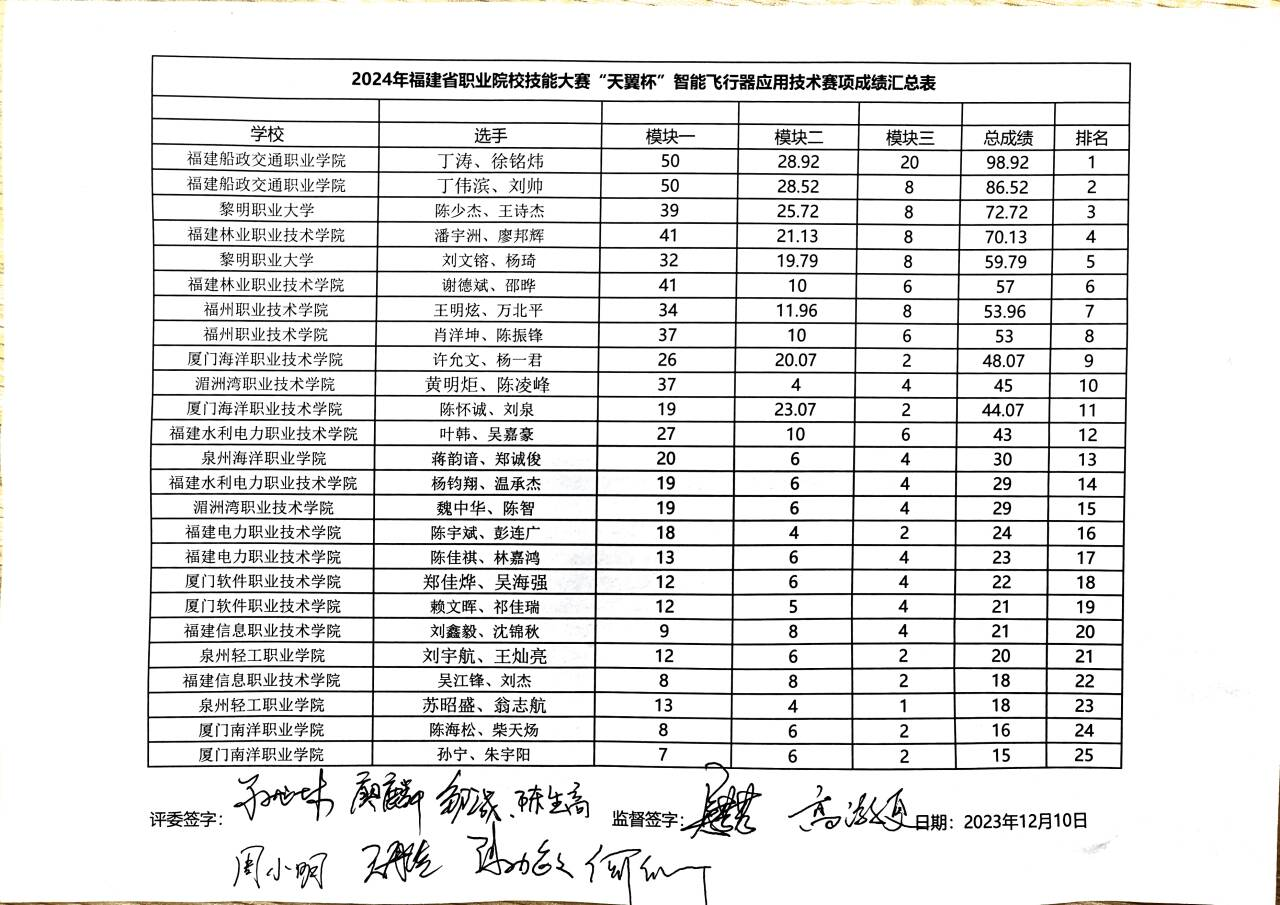 2024年福建省职业院校技能大赛“天翼杯”智能飞行器应用技术赛项成绩汇总表
学校 选手 模块一 模块二 模块三 总成绩 排名
福建船政交通职业学院 丁涛、徐铭炜 50 28.92 20 98.92 1
福建船政交通职业学院 丁伟滨、刘帅 50 28.52 8 86.52 2
黎明职业大学 陈少杰、王诗杰 39 25.72 8 72.72 3
福建林业职业技术学院 潘宇洲、廖邦辉 41 21.13 8 70.13 4
黎明职业大学 刘文镕、杨琦 32 19.79 8 59.79 5
福建林业职业技术学院 谢德斌、邵晔 41 10 6 57 6
福州职业技术学院 王明炫、万北平 34 11.96 8 53.96 7
福州职业技术学院 肖洋坤、陈振锋 37 10 6 53 8
厦门海洋职业技术学院 许允文、杨一君 26 20.07 2 48.07 9
湄洲湾职业技术学院 黄明炬、陈凌峰 37 4 4 45 10
厦门海洋职业技术学院 陈怀诚、刘泉 19 23.07 2 44.07 11
福建水利电力职业技术学院 叶韩、吴嘉豪 27 10 6 43 12
泉州海洋职业学院 蒋韵谙、郑诚俊 20 6 4 30 13
福建水利电力职业技术学院 杨钧翔、温承杰 19 6 4 29 14
湄洲湾职业技术学院 魏中华、陈智 19 6 4 29 15
福建电力职业技术学院 陈宇斌、彭连广 18 4 2 24 16
福建电力职业技术学院 陈佳祺、林嘉鸿 13 6 4 23 17
厦门软件职业技术学院 郑佳烨、吴海强 12 6 4 22 18
厦门软件职业技术学院 赖文晖、祁佳瑞 12 5 4 21 19
福建信息职业技术学院 刘鑫毅、沈锦秋 9 8 4 21 20
泉州轻工职业学院 刘宇航、王灿亮 12 6 2 20 21
福建信息职业技术学院 吴江锋、刘杰 8 8 2 18 22
泉州轻工职业学院 苏昭盛、翁志航 13 4 1 18 23
厦门南洋职业学院 陈海松、柴天炀 8 6 2 16 24
厦门南洋职业学院 孙宁、朱宇阳 7 6 2 15 25
评委签字： 陈生高 监督签字： 日期：2023年12月10日
周小明